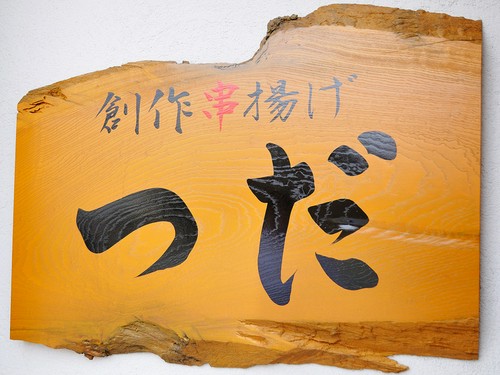 創作串揚げ
つだ